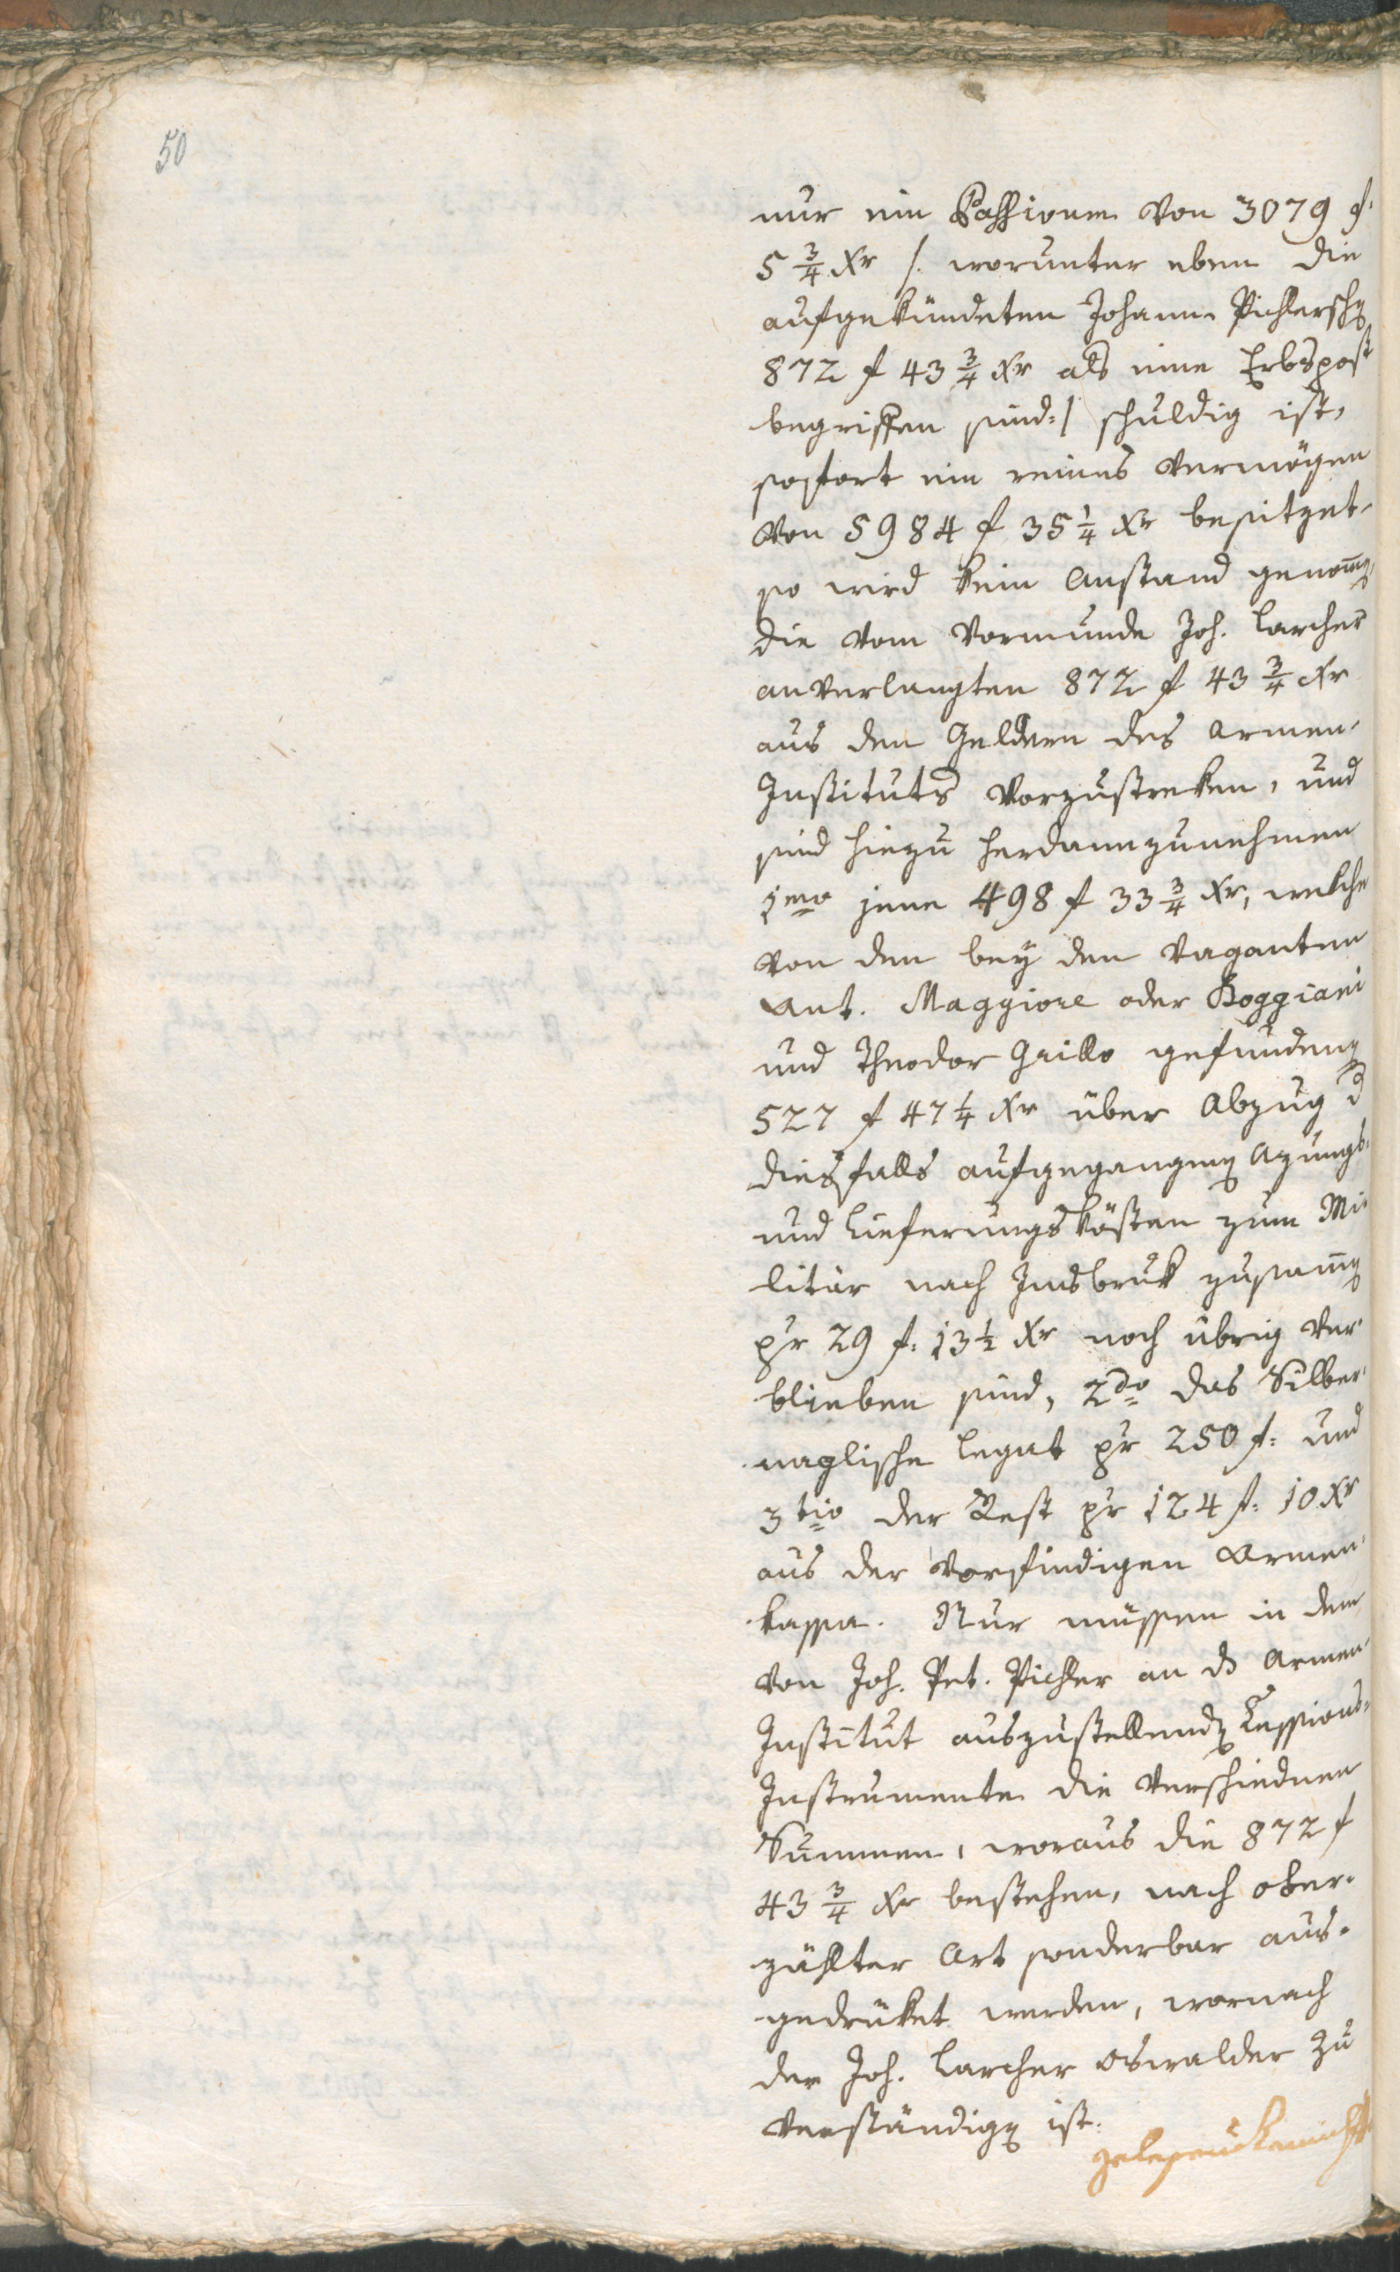 50
nur ein Passivum von 3079 f.
5 3/4 Xr /. worunter eben die
aufgekündeten Johann Pichlersch
872 f 43 3/4 Xr als eine Erbspost
begriffen sind:/ schuldig ist,
sofort ein reines Vermögen
von 5984 f 35 1/4 Xr besitzet,
so wird kein Anstand genom̄en
die vom Vormunde Joh. Larcher
anverlangten 872 f 43 3/4 Xr
aus den Geldern des Armen-
Instituts vorzustreken, und
sind hiezu herdannzunehmen
1mo jene 498 f 33 3/4 Xr, welche
von den bey den Vaganten
Ant. Maggiore oder Boggiani
und Theodor Grillo gefundenen
527 f 47 1/4 Xr über Abzug d
diesfalls aufgegangenen Azungs-
und Lieferungskösten zum Mi
litär nach Insbruk zusam̄en
pr 29 f: 13 1/2 Xr noch übrig ver
blieben sind, 2do das Silber
naglische Legat pr 250 f: und
3tio der Rest pr 124 f: 10 Xr
aus der vorfindigen Armen
kassa. Nur müssen in dem
von Joh. Pet. Pichler an ds Armen-
Institut auszustellenden Cessions-
Instrumente die verschiednen
Summen, woraus die 872 f
43 3/4 Xr bestehen, nach ober-
zählter Art sonderbar aus-
gedrüket werden, wornach
der Joh. Larcher Oswalder zu
verständigen ist.